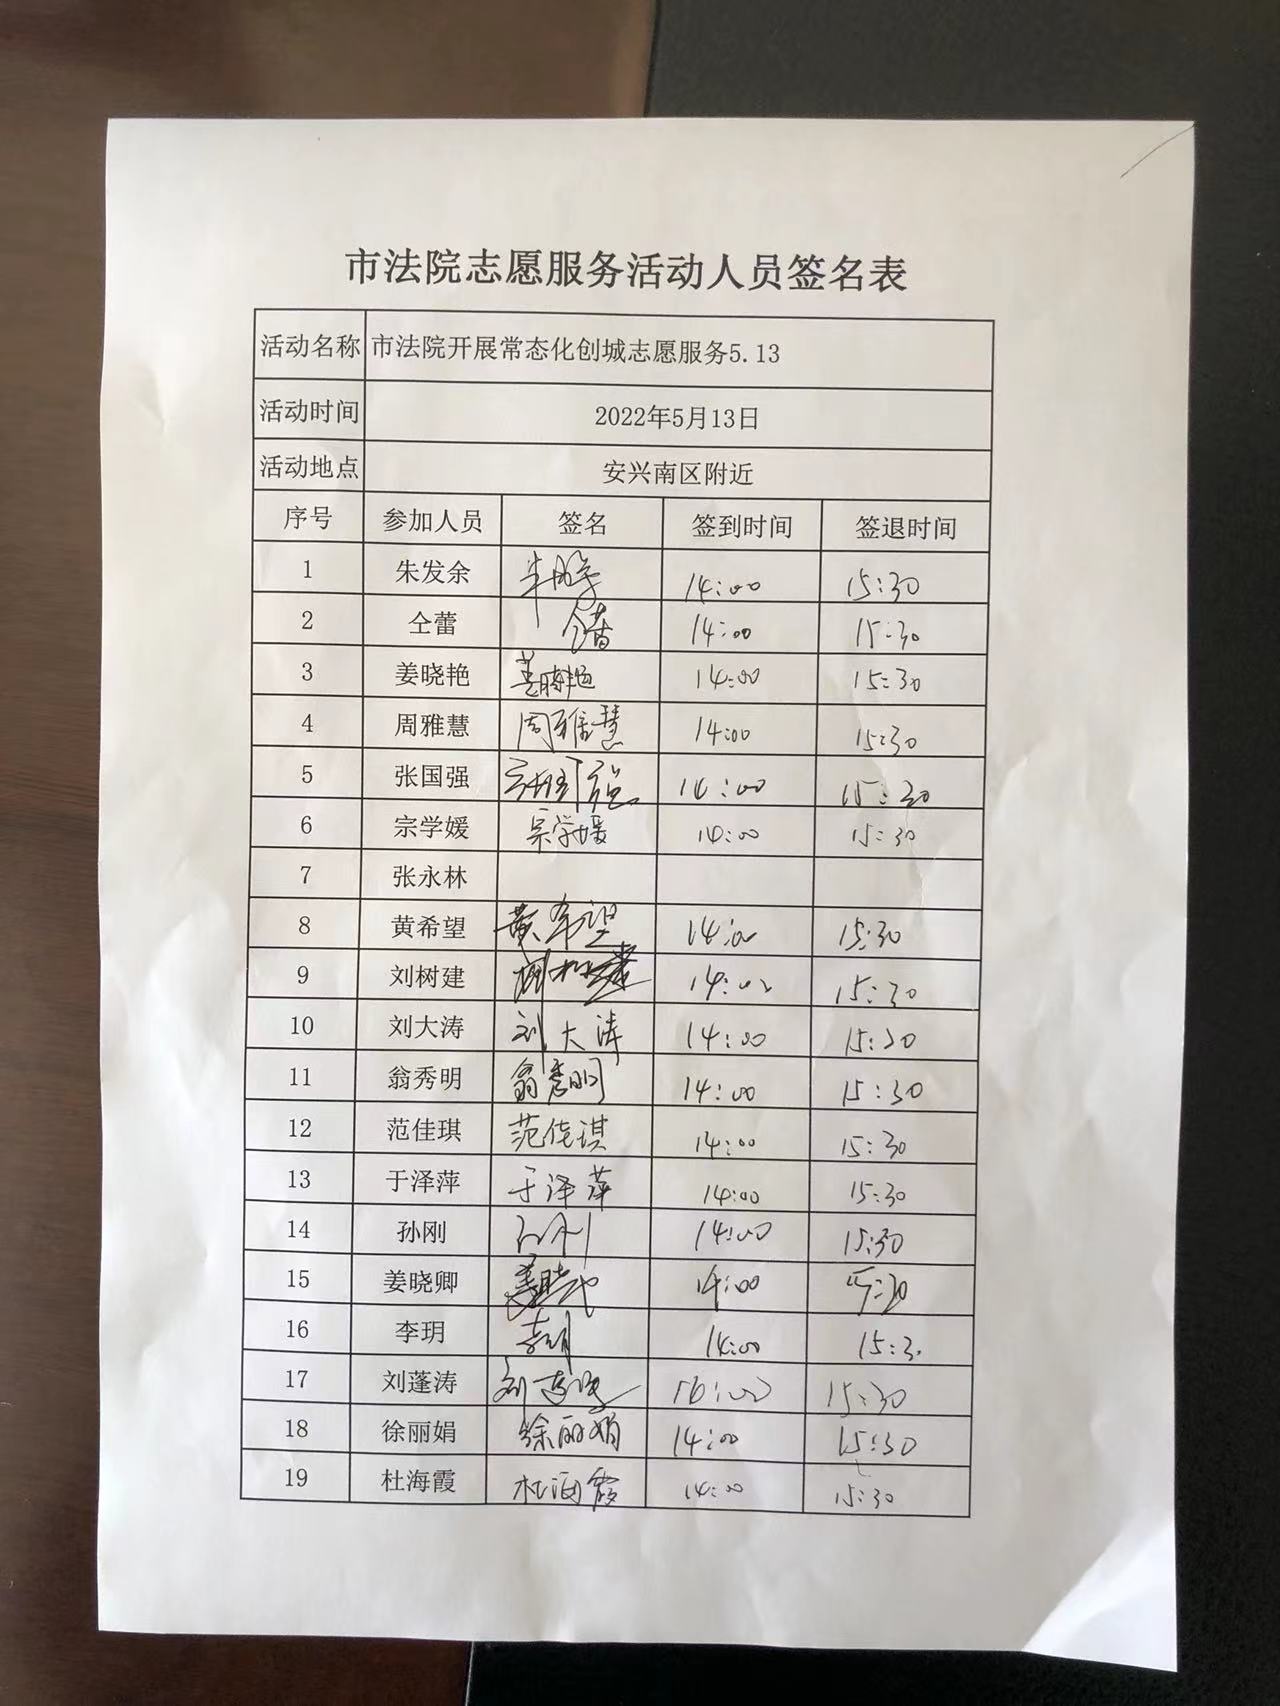 市法院志愿服务活动人员签名表
活动名称 市法院开展常态化创城志愿服务5.13
活动时间 2022年5月13日
活动地点 安兴南区附近
序号 参加人员 签名 签到时间 签退时间
1 朱发余 14:00 15:30
2 仝蕾 仝蕾 14:00 15:30
3 姜晓艳 姜晓艳 14:00 15:30
4 周雅慧 周雅慧 14:00 15:30
5 张国强 张国强 14:00 15:30
6 宗学媛 宗学媛 14:00 15:30
7 张永林
8 黄希望 黄希望 14:00 15:30
9 刘树建 刘树建 14:00 15:30
10 刘大涛 刘大涛 14:00 15:30
11 翁秀明 翁秀明 14:00 15:30
12 范佳琪 范佳琪 14:00 15:30
13 于泽萍 于泽萍 14:00 15:30
14 孙刚 孙刚 14:00 15:30
15 姜晓卿 姜晓卿 14:00 15:30
16 李玥 李玥 14:00 15:30
17 刘蓬涛 15:30
18 徐丽娟 徐丽娟 14:00 15:30
19 杜海霞 杜海霞 14:00 15:30